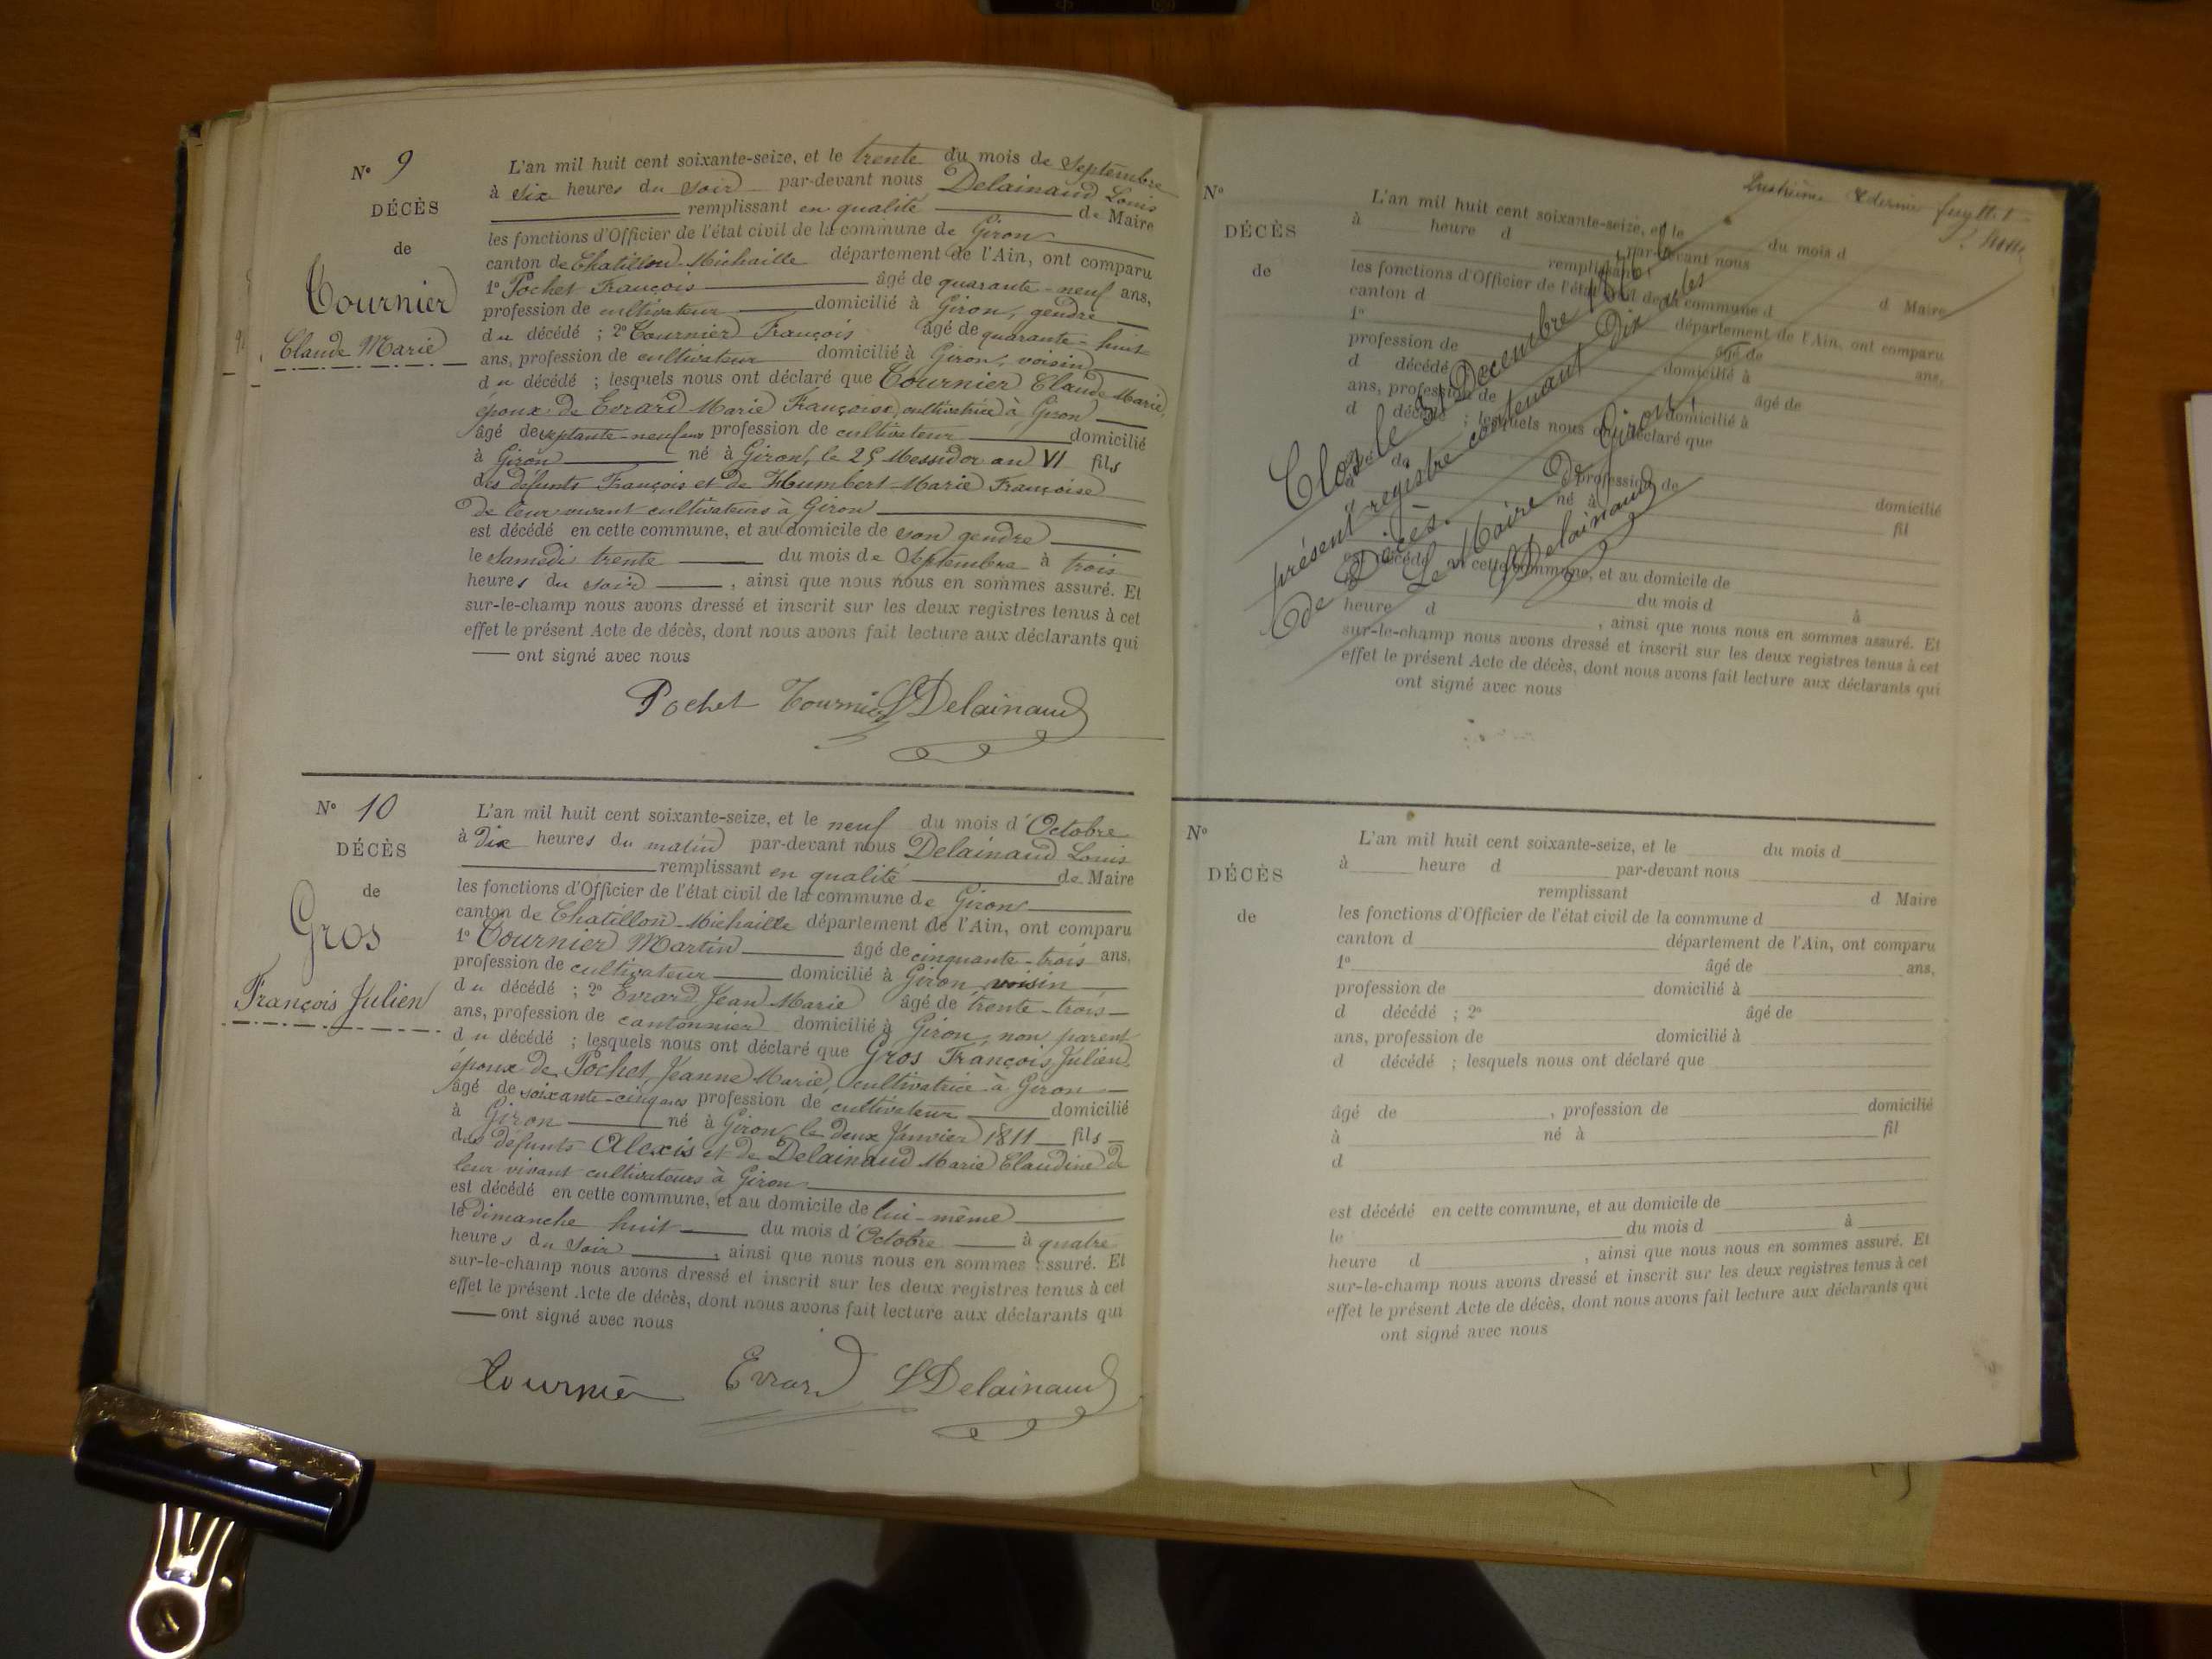 N° 9
DÉCÈS
de
Tournier
Claude Marie
L'an mil huit cent soixante-seize, et le trente du mois de Septembre
à six heures du soir par-devant nous Delainaud Louis
remplissant en qualité de Maire
les fonctions d'Officier de l'état civil de la commune de Giron
canton de Chatillon-Michaille département de l'Ain, ont comparu
1° Pochet François âgé de quarante-neuf ans,
profession de cultivateur domicilié à Giron, gendre
du décédé ; 2° Tournier François âgé de quarante-huit
ans, profession de cultivateur domicilié à Giron, voisin
du décédé ; lesquels nous ont déclaré que Tournier Claude Marie,
époux de Evrard Marie Françoise, cultivatrice à Giron
âgé de septante-neuf ans profession de cultivateur domicilié
à Giron né à Giron, le 25 Messidor an VI fils
des défunts François et de Humbert Marie Françoise
de leur vivant cultivateurs à Giron
est décédé en cette commune, et au domicile de son gendre
le samedi trente du mois de Septembre à trois
heures du soir, ainsi que nous nous en sommes assuré. Et
sur-le-champ nous avons dressé et inscrit sur les deux registres tenus à cet
effet le présent Acte de décès, dont nous avons fait lecture aux déclarants qui
ont signé avec nous
Pochet Tournier LDelainaud
N° 10
DÉCÈS
de
Gros
François Julien
L'an mil huit cent soixante-seize, et le neuf du mois d'Octobre
à Dix heures du matin par-devant nous Delainaud Louis
remplissant en qualité de Maire
les fonctions d'Officier de l'état civil de la commune de Giron
canton de Chatillon-Michaille département de l'Ain, ont comparu
1° Tournier Martin âgé de cinquante-trois ans,
profession de cultivateur domicilié à Giron, voisin
du décédé ; 2° Evrard Jean Marie âgé de trente-trois
ans, profession de cantonnier domicilié à Giron, non parent
du décédé ; lesquels nous ont déclaré que Gros François Julien,
époux de Pochet Jeanne Marie, cultivatrice à Giron
âgé de soixante-cinq ans profession de cultivateur domicilié
à Giron né à Giron, le deux Janvier 1811 fils
des défunts Alexis et de Delainaud Marie Claudine de
leur vivant cultivateurs à Giron
est décédé en cette commune, et au domicile de lui-même
le dimanche huit du mois d'Octobre à quatre
heures du soir, ainsi que nous nous en sommes assuré. Et
sur-le-champ nous avons dressé et inscrit sur les deux registres tenus à cet
effet le présent Acte de décès, dont nous avons fait lecture aux déclarants qui
ont signé avec nous
Tournier Evrard LDelainaud
N°
DÉCÈS
de
L'an mil huit cent soixante-seize, et le du mois d
à heure d par-devant nous
remplissant d Maire
les fonctions d'Officier de l'état civil de la commune d
canton d département de l'Ain, ont comparu
1° âgé de ans,
profession de domicilié à
d décédé âgé de
ans, profession de domicilié à
d décédé ; lesquels nous ont déclaré que
âgé de profession de domicilié
né à fil
est décédé en cette commune, et au domicile de
du mois d à
heure d , ainsi que nous nous en sommes assuré. Et
sur-le-champ nous avons dressé et inscrit sur les deux registres tenus à cet
effet le présent Acte de décès, dont nous avons fait lecture aux déclarants qui
ont signé avec nous
Clos le 31 Décembre 1876 le
présent registre contenant Dix actes
de Décès.
Le Maire de Giron,
LDelainaud
N°
DÉCÈS
de
L'an mil huit cent soixante-seize, et le du mois d
à heure d par-devant nous
remplissant d Maire
les fonctions d'Officier de l'état civil de la commune d
canton d département de l'Ain, ont comparu
1° âgé de ans,
profession de domicilié à
d décédé ; 2° âgé de
ans, profession de domicilié à
d décédé ; lesquels nous ont déclaré que
âgé de , profession de domicilié
à né à fil
d
est décédé en cette commune, et au domicile de
le du mois d à
heure d , ainsi que nous nous en sommes assuré. Et
sur-le-champ nous avons dressé et inscrit sur les deux registres tenus à cet
effet le présent Acte de décès, dont nous avons fait lecture aux déclarants qui
ont signé avec nous